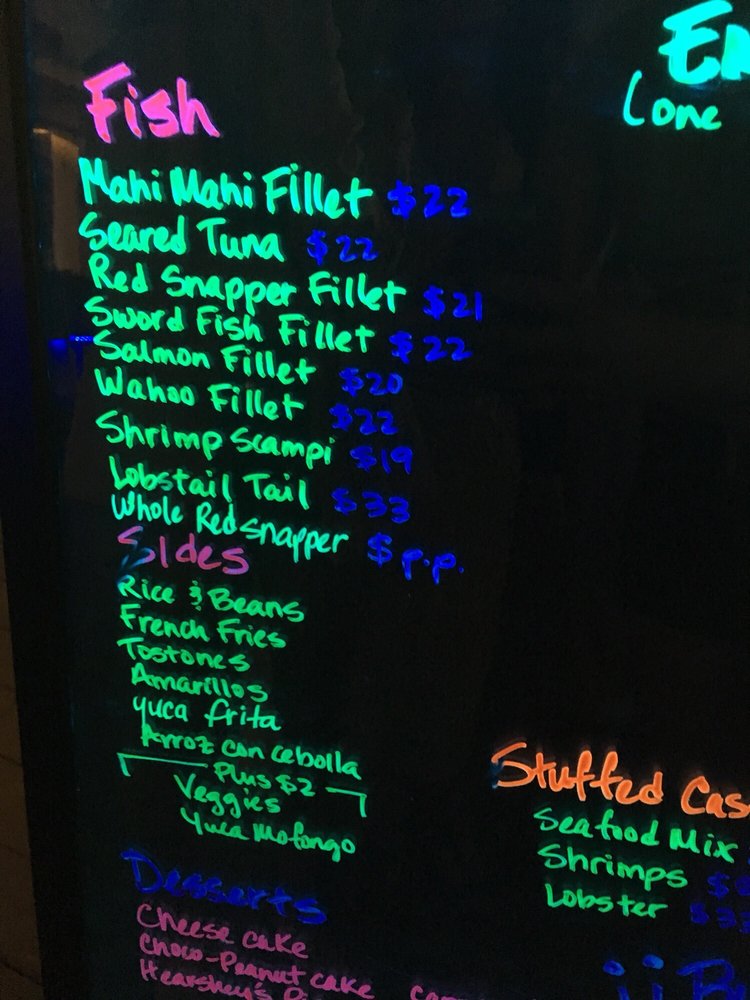 Fish
Mahi Mahi Fillet $22
Seared Tuna $22
Red Snapper Fillet $21
Sword Fish Fillet $22
Salmon Fillet $20
Wahoo Fillet $22
Shrimp Scampi $19
Lobstail Tail $33
Whole Red snapper $ p.p.
Sides
Rice & Beans
French Fries
Tostones
Amarillos
Yuca frita
Arroz con cebolla
Plus $2
Veggies
Yuca Mofongo
Desserts
Cheese cake
Choco-Peanut cake
Hearshey's
Cone
Stuffed
Seafood Mix
Shrimps
Lobster